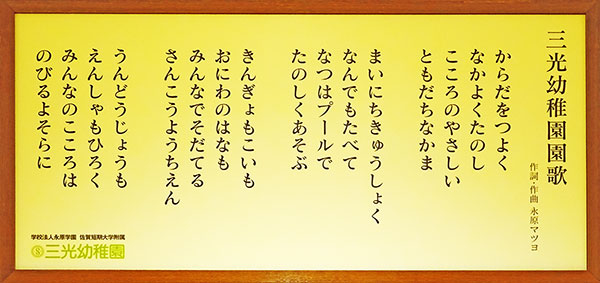 三光幼稚園園歌
作詞・作曲 永原マツヨ
からだをつよく
なかよくたのし
こころのやさしい
ともだちなかま
まいにちきゅうしょく
なんでもたべて
なつはプールで
たのしくあそぶ
きんぎょもこいも
おにわのはなも
みんなでそだてる
さんこうようちえん
うんどうじょうも
えんしゃもひろく
みんなのこころは
のびるよそらに
学校法人永原学園 佐賀短期大学附属
S三光幼稚園